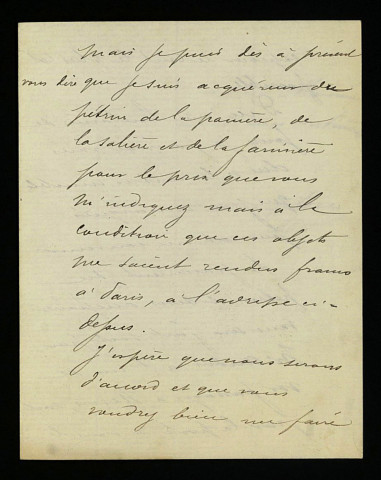 mais je puis dès à présent
vous dire que je suis acquéreur du
pétrin de la panière, de
la salière et de la farinière
pour le prix que vous
m'indiquez mais à la
condition que ces objets
me soient rendus franco
à Paris, à l'adresse ci-
dessus.
J'espère que nous serons
d'accord et que vous
voudrez bien me faire